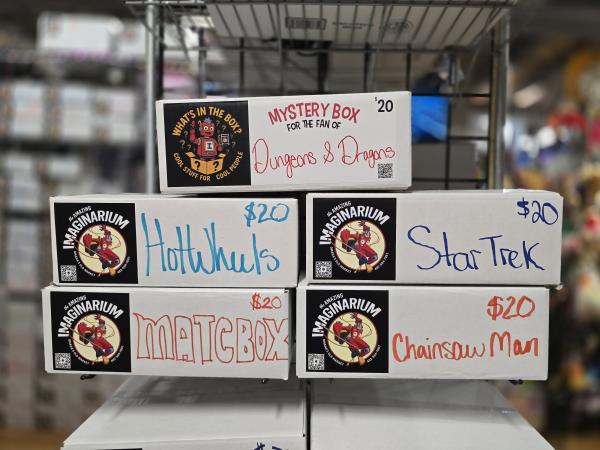 WHAT'S IN THE BOX?
COOL STUFF FOR COOL PEOPLE
MYSTERY BOX
FOR THE FAN OF
$20
Dungeons & Dragons
The AMAZING
IMAGINARIUM
$20
HotWheels
The AMAZING
IMAGINARIUM
$20
Star Trek
The AMAZING
IMAGINARIUM
$20
MATCBOX
The AMAZING
IMAGINARIUM
$20
Chainsaw Man